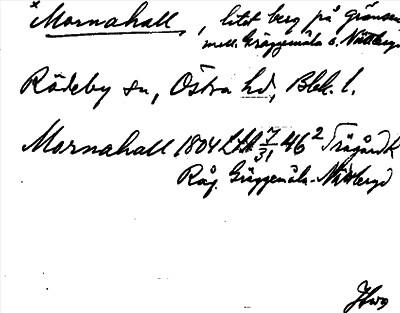 × Mornahall, litet berg på gränsen
mell. Gräggemåla o. Nättbergs
Rödeby sn, Östra hd, Blek. l.
Mornahall 1804 LSA 7/31 46²
Råg. Gräggemåla - Nättbergs